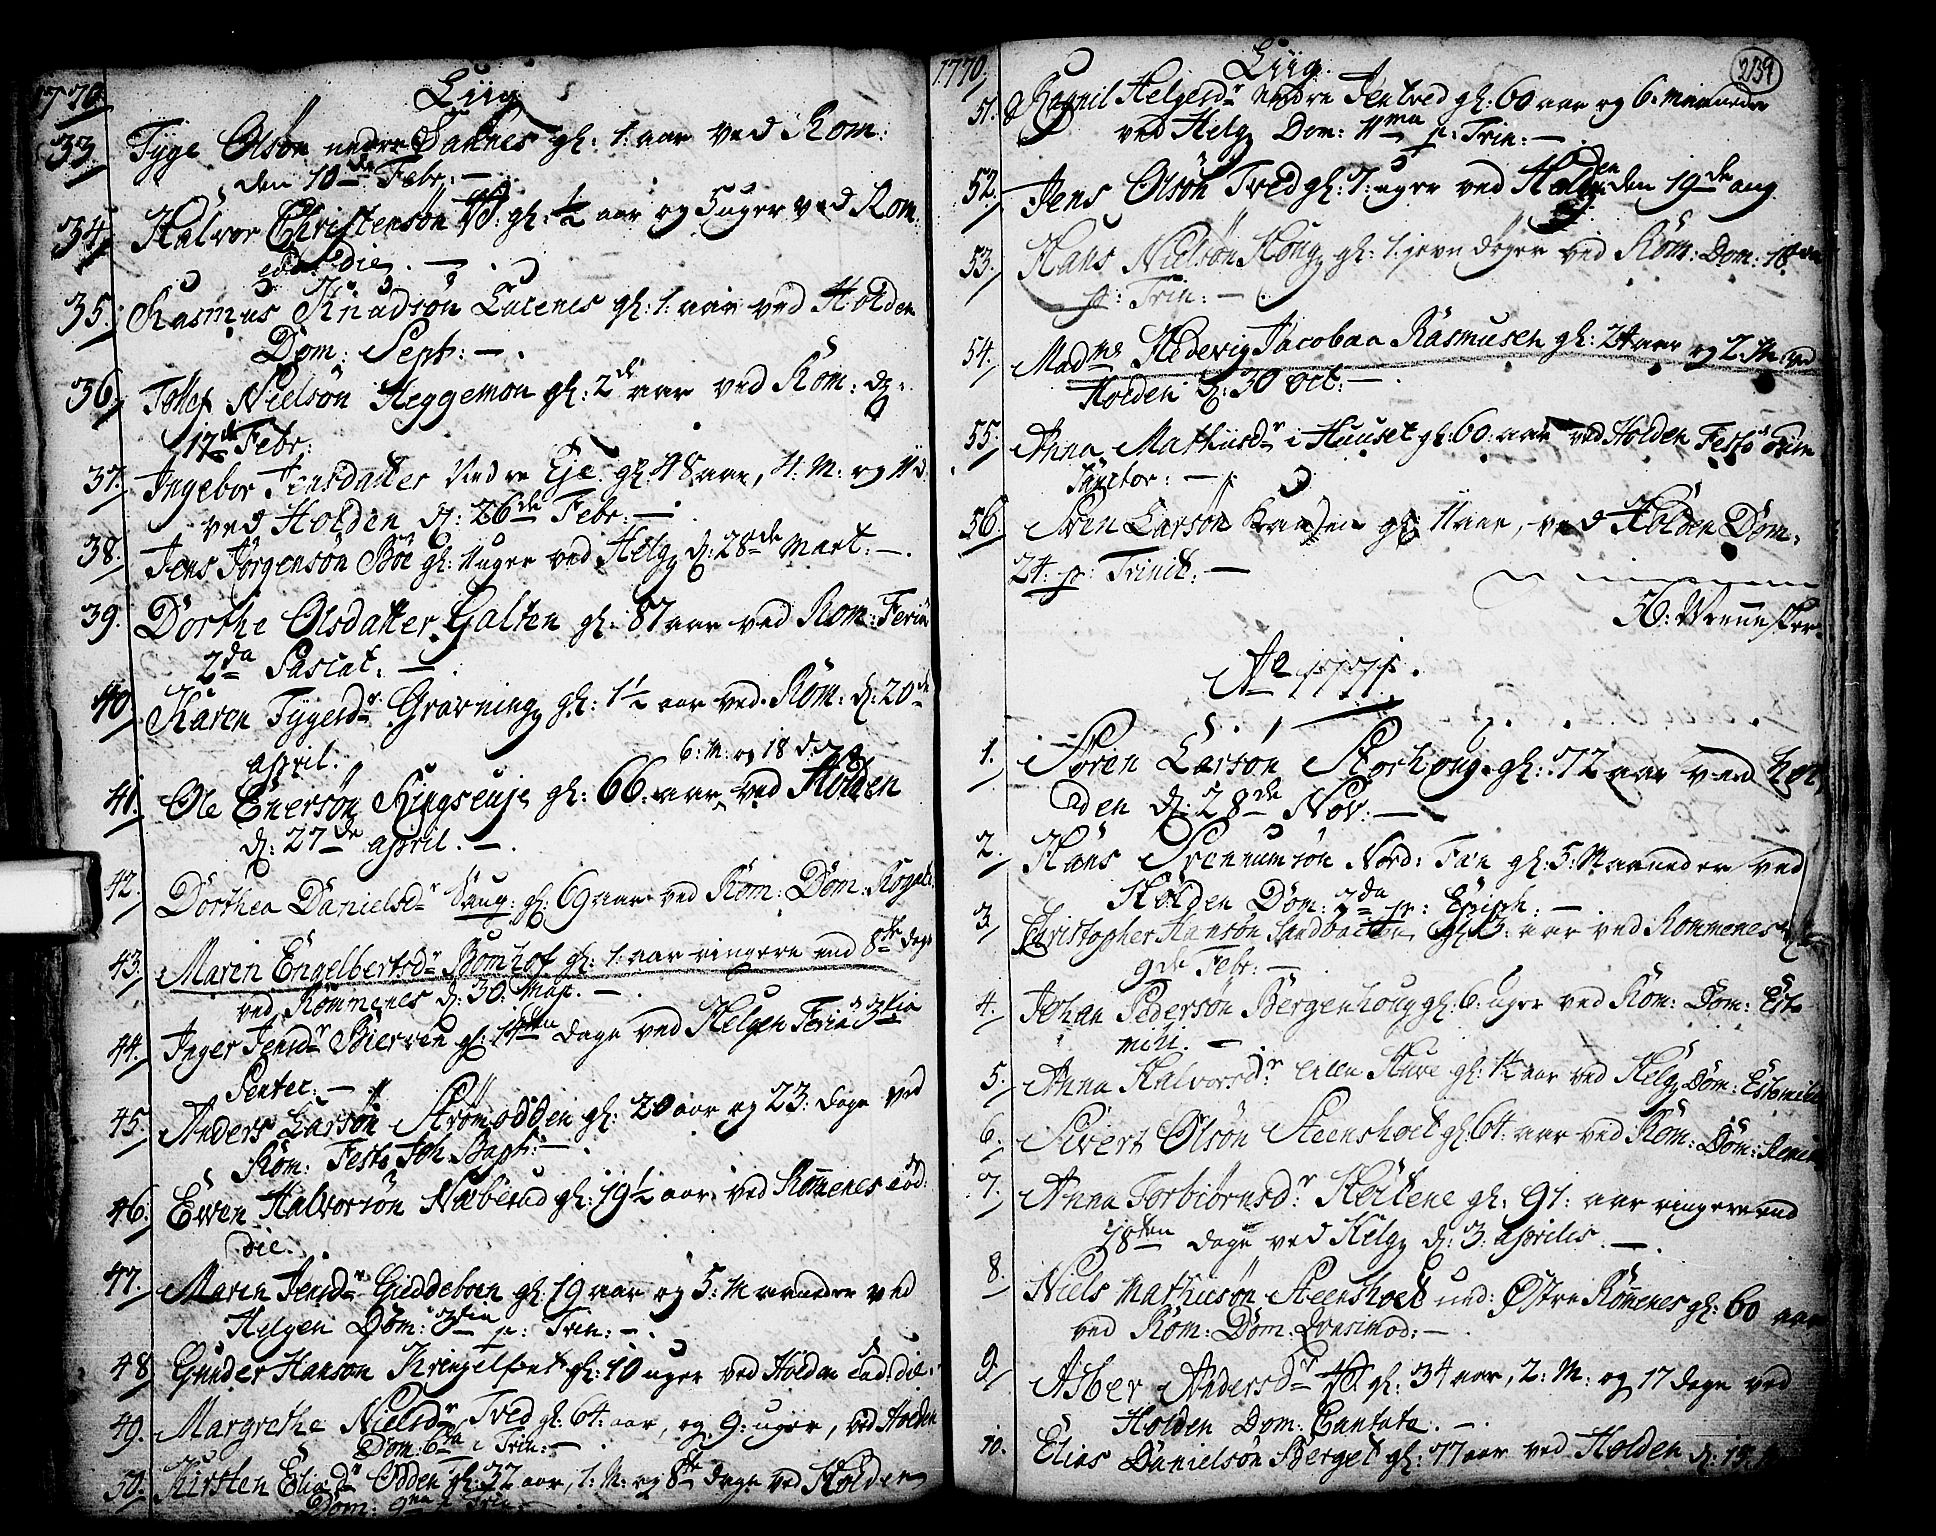 1770.
Liig
33. Tyge Olsøn nedre gl: 1. aar ved Rom:
den 10de Febr: —
34. Halvor Christensøn gl: ½ aar og 5 uger ved Rom.
eod. die. —
35. Rasmus Knudsøn gl: 1: aar ved Holden
Dom: Sept: —.
36. Tollef Nielsøn Heggemon gl: 2 aar ved Rom: d:
17de Febr:
37. Ingebor Jensdatter Nedre Eje gl: 48 aar, 4: M: og
ved Holden d: 26de Febr: —
38. Jens Jørgensøn Böe gl: uger ved Helg: d: 28de Mart: —.
39. Dorthe Olsdatter Galten gl: 87 aar ved Rom: Feria
2da Pascat: —
40. Karen Tygersdr Gravning gl: 1½ aar ved Rom: d: 20de
April.
6: M: og 18 d:
41. Ole Enersøn Ringseuje gl: 66. aar ved Holden
d: 27de April. —.
42. Dorthea Danielsdr Haug: gl: 69 aar ved Rom: Dom: Rogat:
43. Maren Engelbertsdr Romhof gl: 1: aar ringere end 8te dage
ved Rommenes d: 30: Maj. —.
44. Inger Jensdr Bierven gl: 14ten dage ved Helgen Feria 3tia
Pentec: —
45. Anders Larsøn Strømodden gl: 20 aar og 23: dage ved
Rom: Festo Joh. Bapt: —.
46. Even Halvorsøn Næberud gl: 19½ aar ved Romenes eod:
die.
47. Maren Jensdr Gieddeboen gl: 19 aar og 5: Maaneder ved
Helgen Dom: 3tia p: Trin: —.
48 Gunder Hansøn Kringelfret gl: 10 uger ved Holden eod: die:
49. Margrethe Nielsdr Tved gl: 64: aar, og 9: uger, ved Holden
Dom: 6ta p: Trin: —
50. Kirsten Eliædr Odden gl: 37 aar, 1: M: og 8te dage ved Holden
Dom: 9na p: Trin: —
1770.
Liig.
239
51. Ragnil Helgesdr nedre Jentved gl: 60 aar og 6: maaneder
ved Helg: Dom: 11ma p: Trin: —
52. Jens Olsøn Tved gl: 7: uger ved Holden den 19de aug
53. Hans Nielsøn Houg gl: 1: jevn døger ved Rom: Dom: 18
p: Trin: —.
54. Madme Hedevig Jacobaa Rasmusen gl: 24 aar og 2. M: ved
Holden d: 30 Oct: —.
55. Anna Mathisdr i Huuset gl: 60: aar ved Holden Festo Omn
Sanctor: —
56. Sven Larsøn gl: 11 aar, ved Holden Dom:
24: p: Trinit: —
56: Mennesker
Ao 1771.
1. Søren Larsøn Storhoug. gl: 72 aar ved Hol
den d: 28de Nov: —
2. Hans Svennumsøn Nord: Fæn gl: 5: Maaneder ved
Holden Dom: 2da p: Epiph: —.
3. Christopher Hansøn Sandbakken gl: 13: aar ved Rommenes
9de Febr: —.
4. Johan Pedersøn Bergenhoug gl: 6: uger ved Rom: Dom: Esto
mihi. —.
5. Anna Halvorsdr Lille Hure gl: 1½ aar ved Helg: Dom: Estomihi
6. Sivert Olsøn Steensholt gl: 64: aar ved Rom: Dom: Remin
7. Anna Torbiørnsdr Heitene gl: 91: aar ringere end
18ten dage ved Helg: d: 3: Aprilis. —.
8. Niels Mathisøn Steensholt und: Østre Romenes gl: 60 aar
ved Rom: Dom: Qvasimod: —.
9. Asber Andersdr gl: 34 aar, 2: M: og 17 dage ved
Holden Dom: Cantate. —.
10. Elias Danielsøn Berget gl: 77 aar ved Holden d: 19